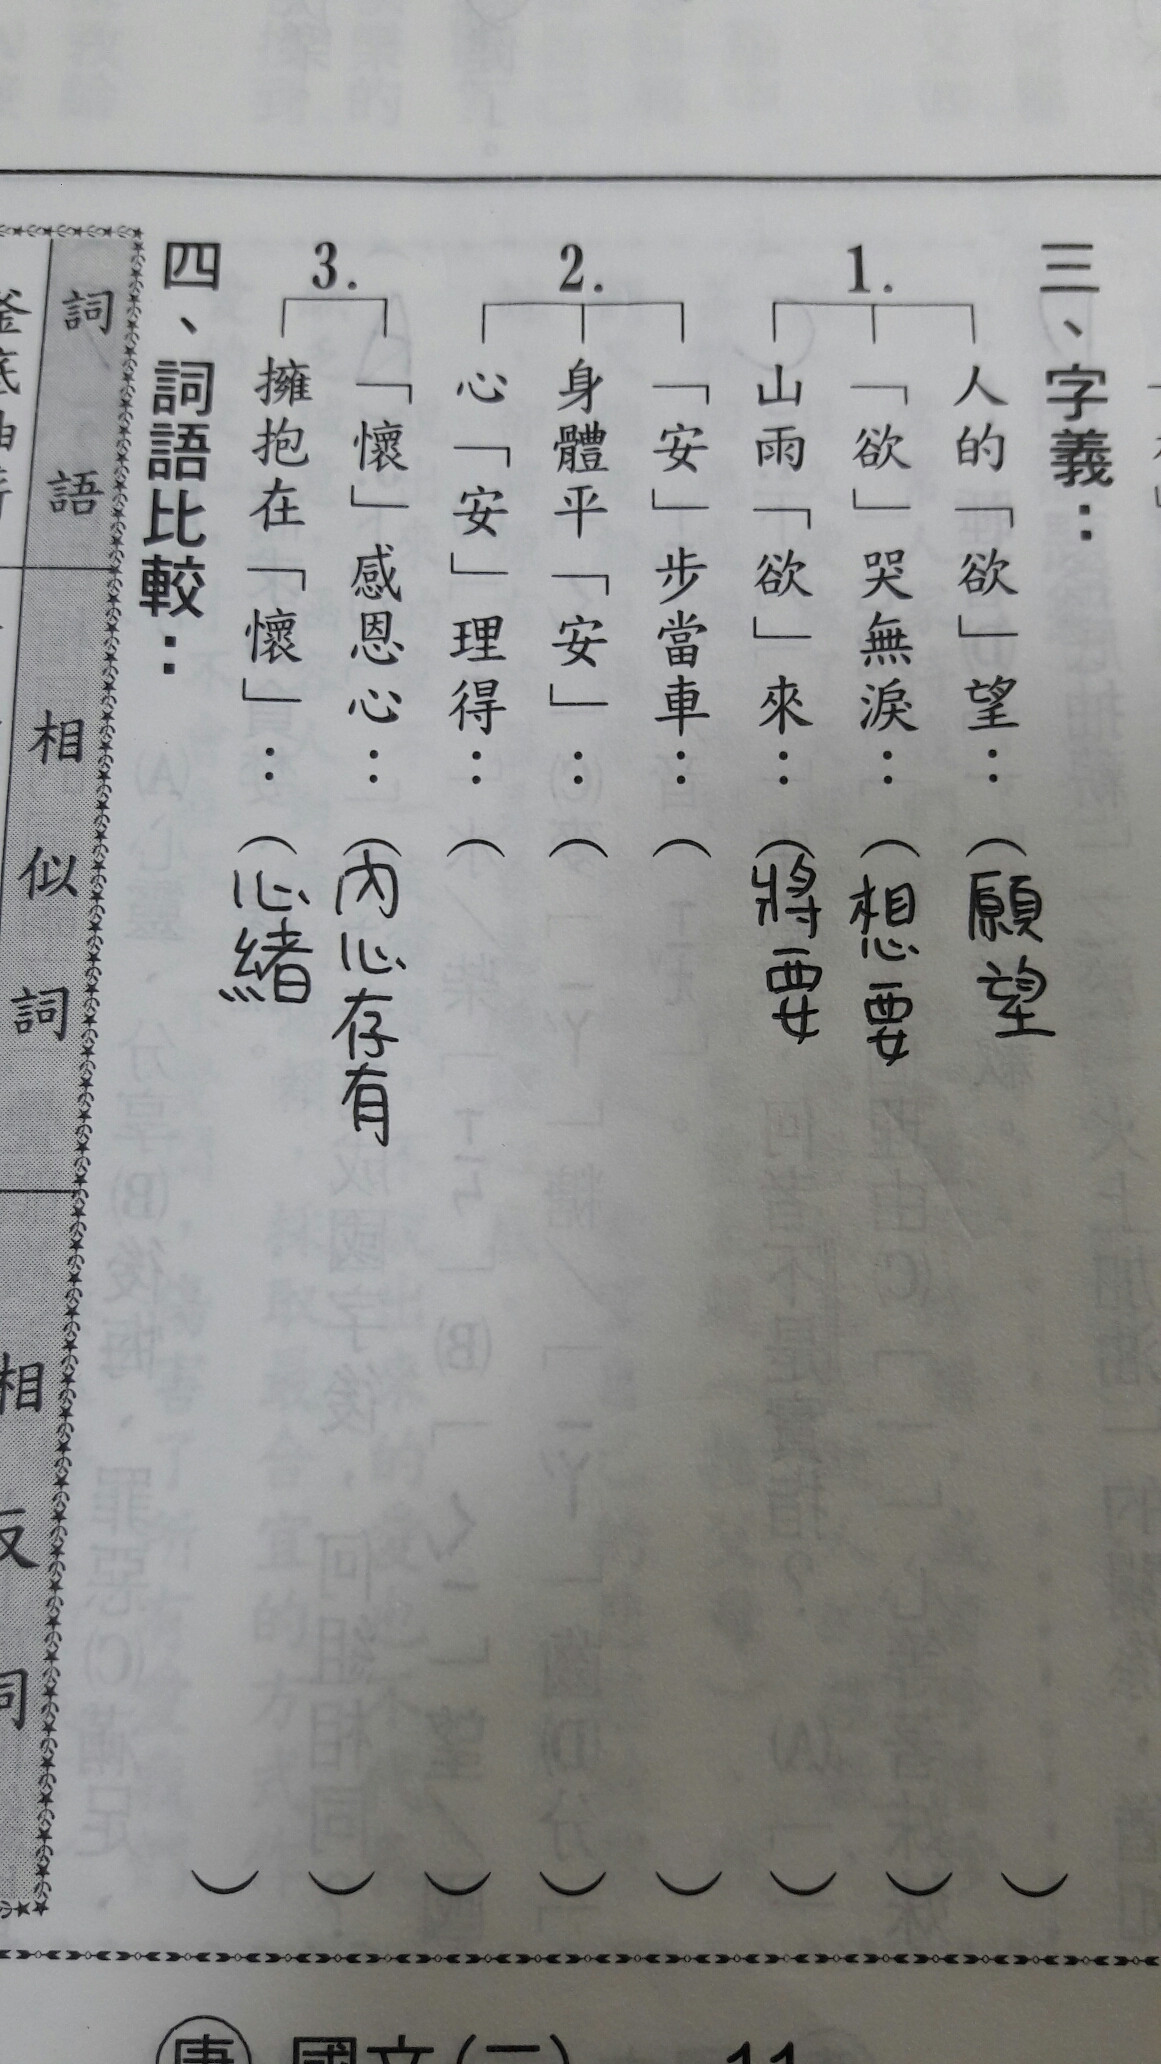 三、字義：
1.
人的「欲」望：（願望）
「欲」哭無淚：（想要）
山雨「欲」來：（將要）
2.
「安」步當車：（）
身體平「安」：（）
心「安」理得：（）
3.
「懷」感恩心：（內心存有）
擁抱在「懷」：（心緒）
四、詞語比較：
詞語
相似詞
相反詞
釜底抽薪
康 國文(二) 11